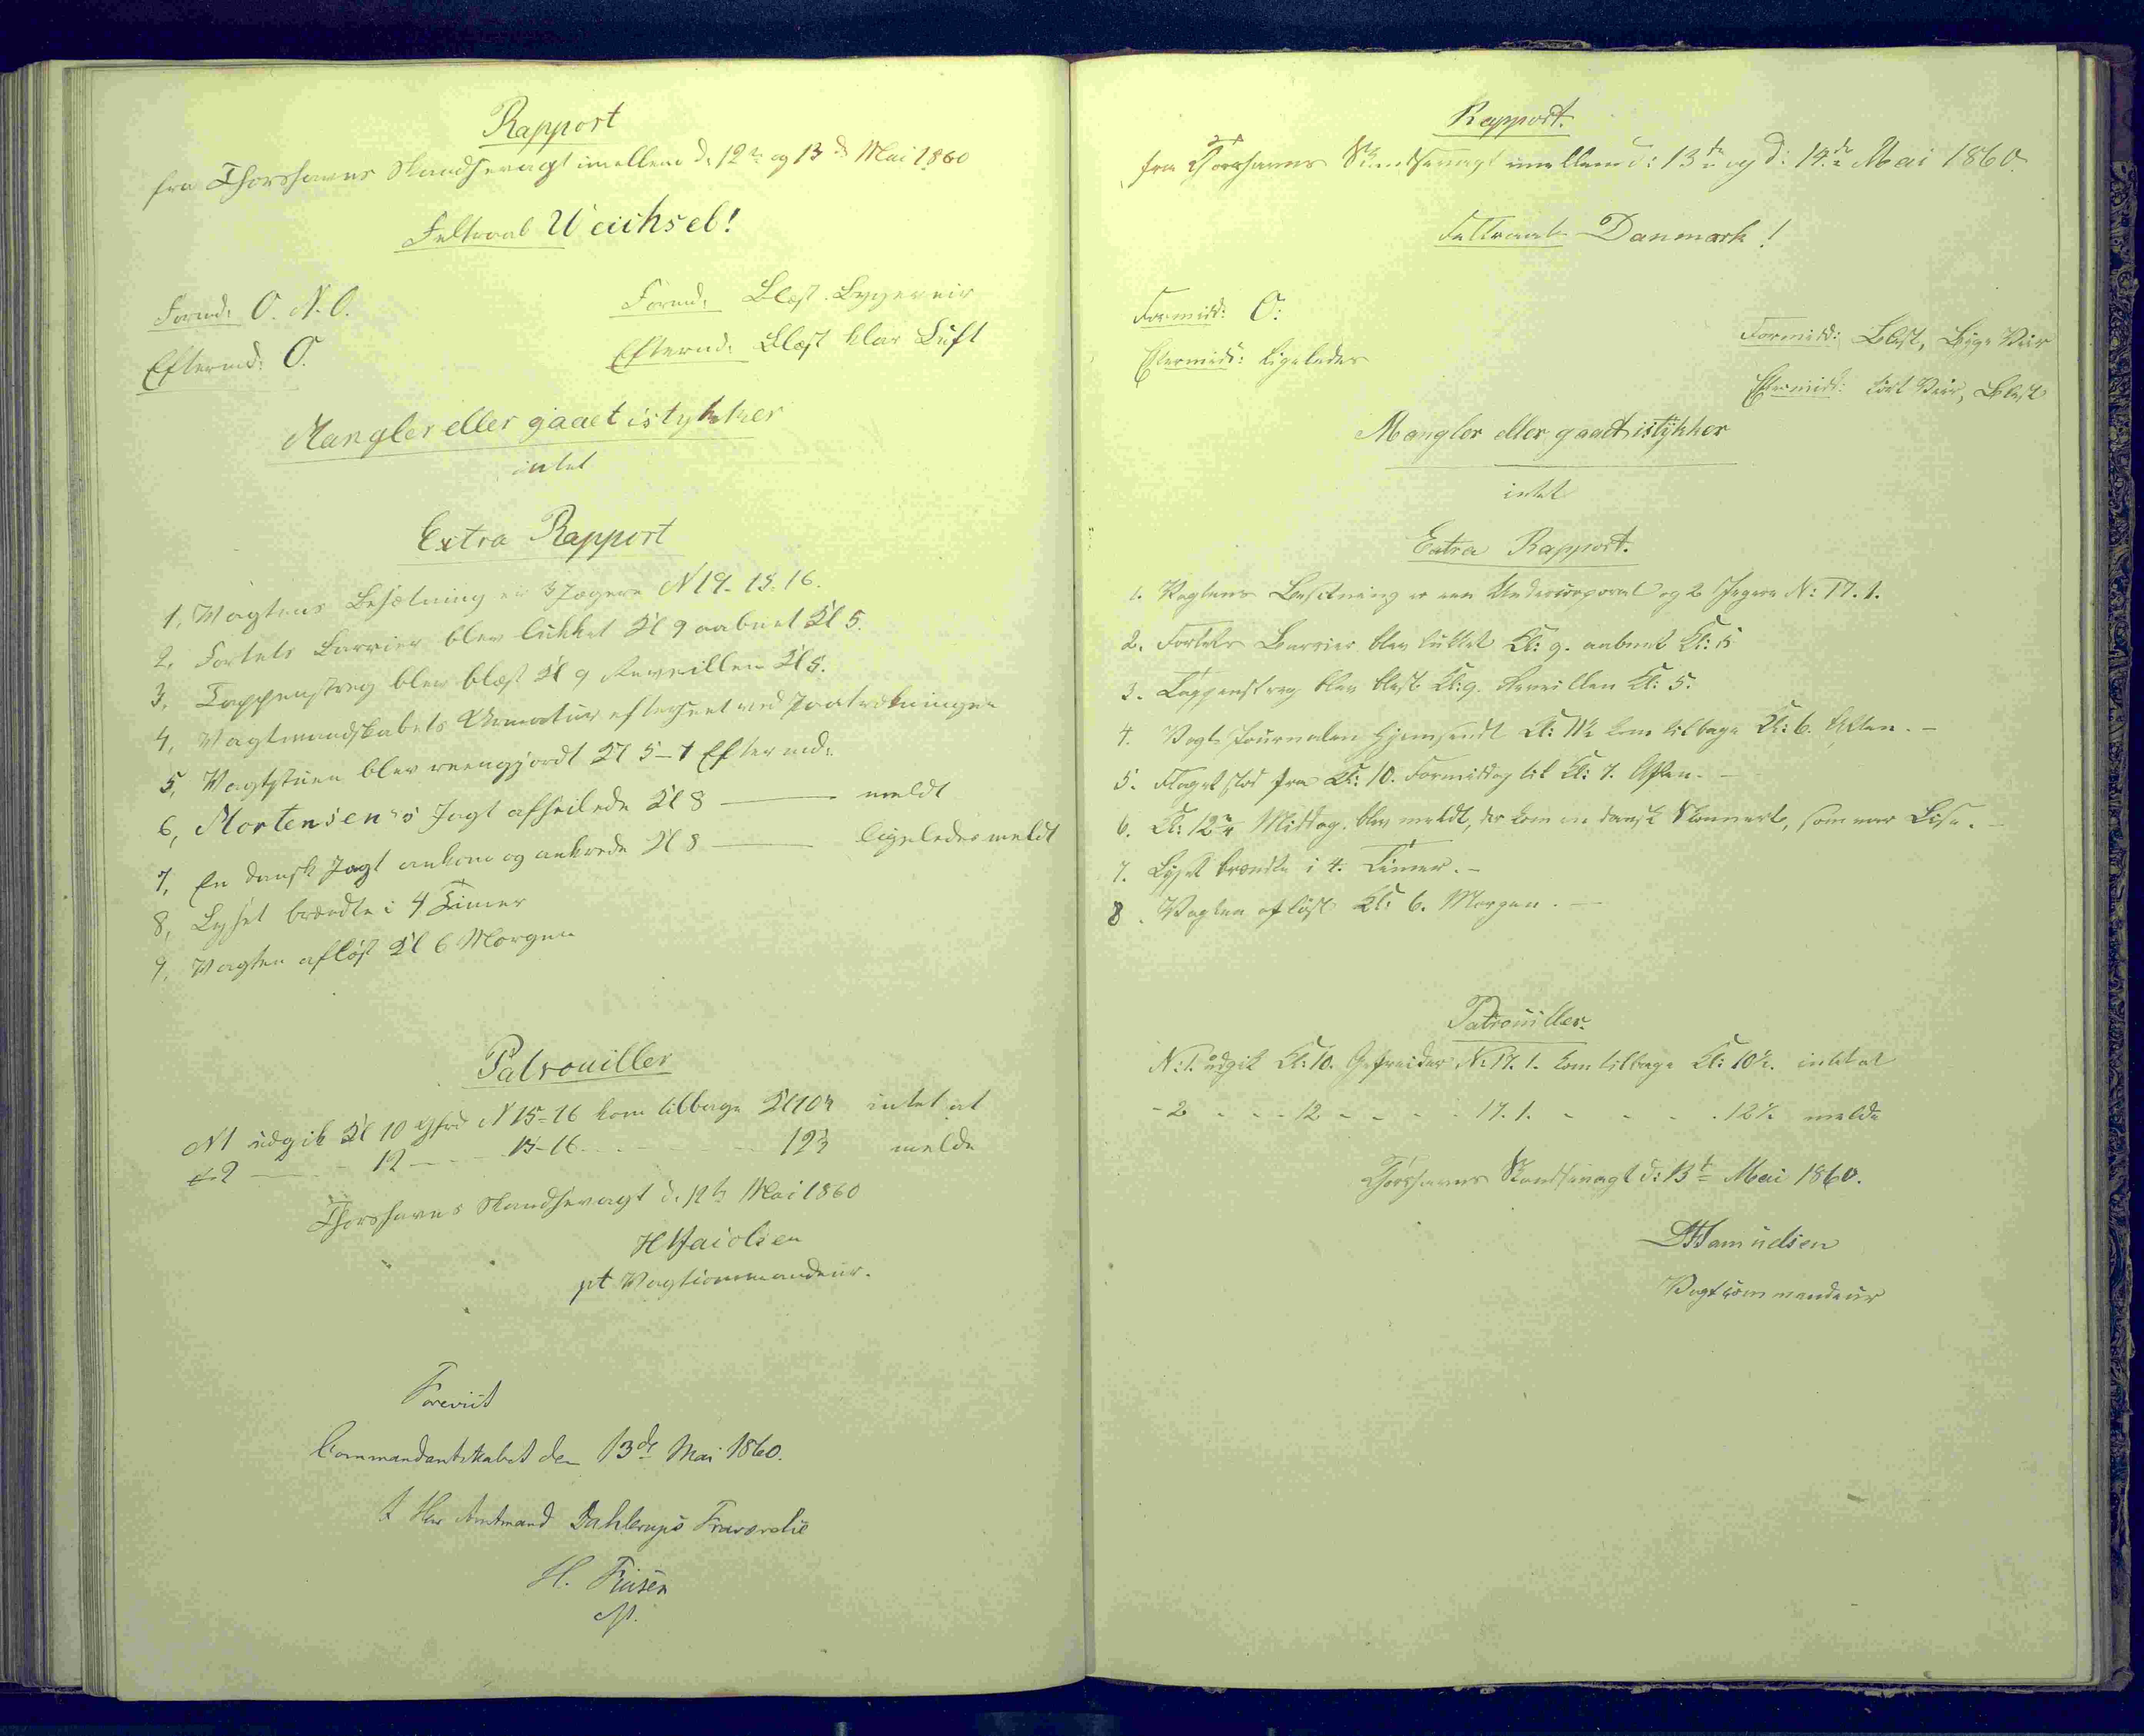 Rapport
fra Thorshavns Skandsevagt imellem d. 12te og 13de Mai 1860
Feltraab Weichsel!
Formd: O. N. O.
Formd: Blæst Bygeveir
Eftermd: O.
Eftermd: Blæst klar Luft
Mangler eller gaaet istykker
intet
Extra Rapport
1, Vagtens Besætning er 3 Jægere N 19-15-16.
2, Fortets Barrier blev lukket Kl 9 aabnet Kl 5.
3, Tappenstreg blev blæst Kl 9 Reveillen Kl 5.
4, Vagtmandskabets Armatur efterseet ved Paatrædningen
5, Vagtstuen blev reengjordt Kl 5-7 Eftermd:
6, Mortensens Jagt afseilede Kl 8 — meldt
7, En dansk Jagt ankom og ankrede Kl 8 — ligeledes meldt
8, Lyset brændte i 4 Timer
9, Vagten afløst Kl 6 Morgen
Patrouiller
N1 udgik Kl 10 Gfrd N 15-16 kom tilbage Kl 10½ intet at
- 2 — 12 — 15-16 — 12½ melde
Thorshavns Skandsevagt d. 12te Mai 1860
pt Vagtcommandeur.
Foreviist
Commandantskabet den 13de Mai 1860.
I Herr Amtmand Dahlerups Fraværelse
H. Finsen
Rapport.
fra Thorshavns Skandsevagt imellem d: 13de og d: 14de Mai 1860.
Feltraab Danmark!
Formidd: O:
Formidd: Blæst, Byge Veir
Eftermidd: ligeledes
Eftermidd: tört Veir, Blæst
Mangler eller gaaet istykker
intet
Extra Rapport.
1. Vagtens Besætning er een Undercorporal og 2 Jægere N: 17. 1.
2. Fortets Barrier blev lukket Kl: 9. aabnet Kl: 5
3. Tappenstreg blev blæst Kl: 9. Reveillen Kl: 5.
4. Vagt Journalen hjemsendt Kl: 11½ kom tilbage Kl: 6. Aften. -
5. Flaget stod fra Kl: 10. Formiddag til Kl: 7. Aften. -
6. Kl: 12¾ Middag blev meldt, der kom en dansk Skonnert, som var Lise. -
7. Lyset brændte i 4. Timer. -
8. Vagten aflöst Kl: 6. Morgen. -
Patrouiller.
N: 1. udgik Kl: 10. Gefreider N: 17. 1. kom tilbage Kl: 10½. intet at
- 2 - - - 12 - - - - 17. 1. - - - 12½ melde
Thorshavns Skandsevagt d: 13de Mai 1860.
Samuelsen
Vagtcommandeur